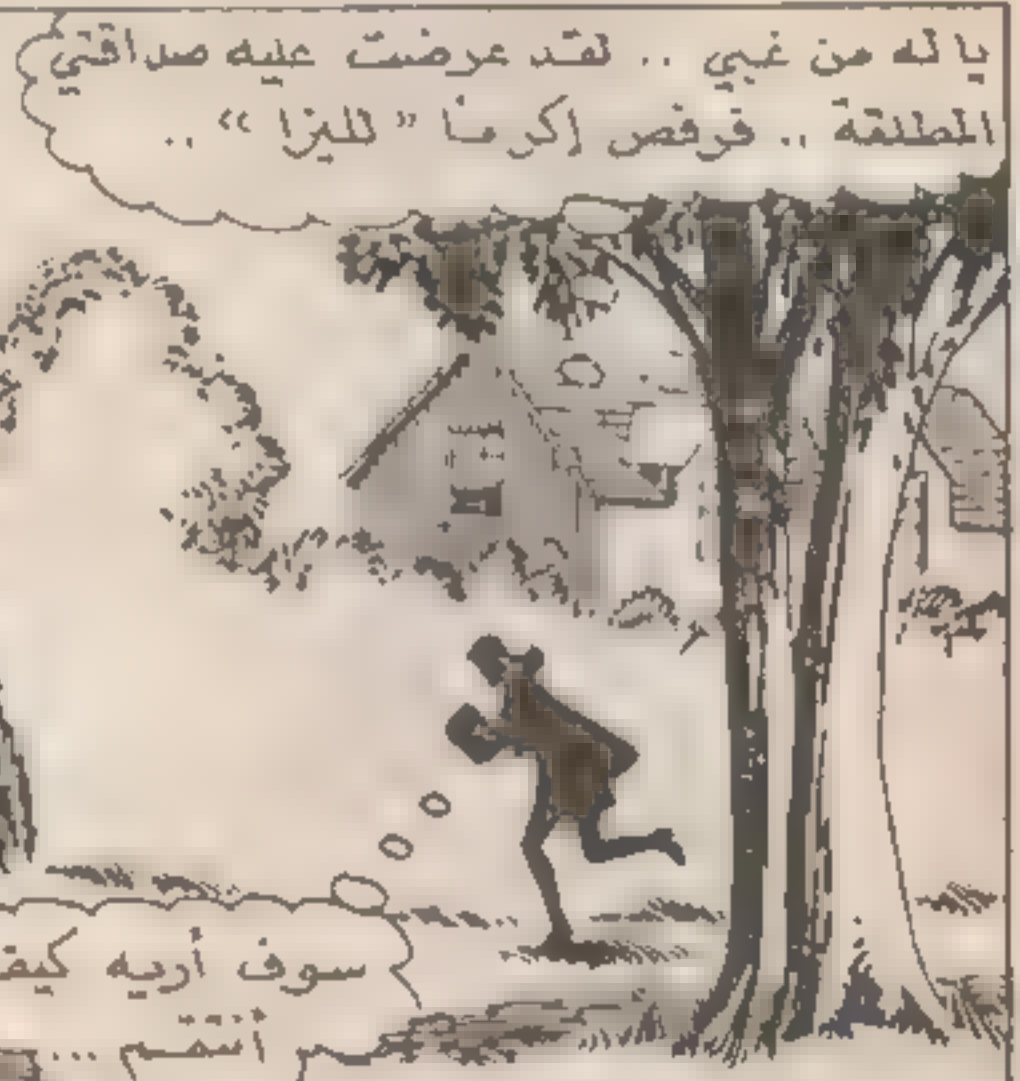 يا له من غبي .. لقد عرضت عليه صداقتي
المطلقة .. فرفض إكرما « لليزا » ..
سوف أريه كيف
أنتقم ...